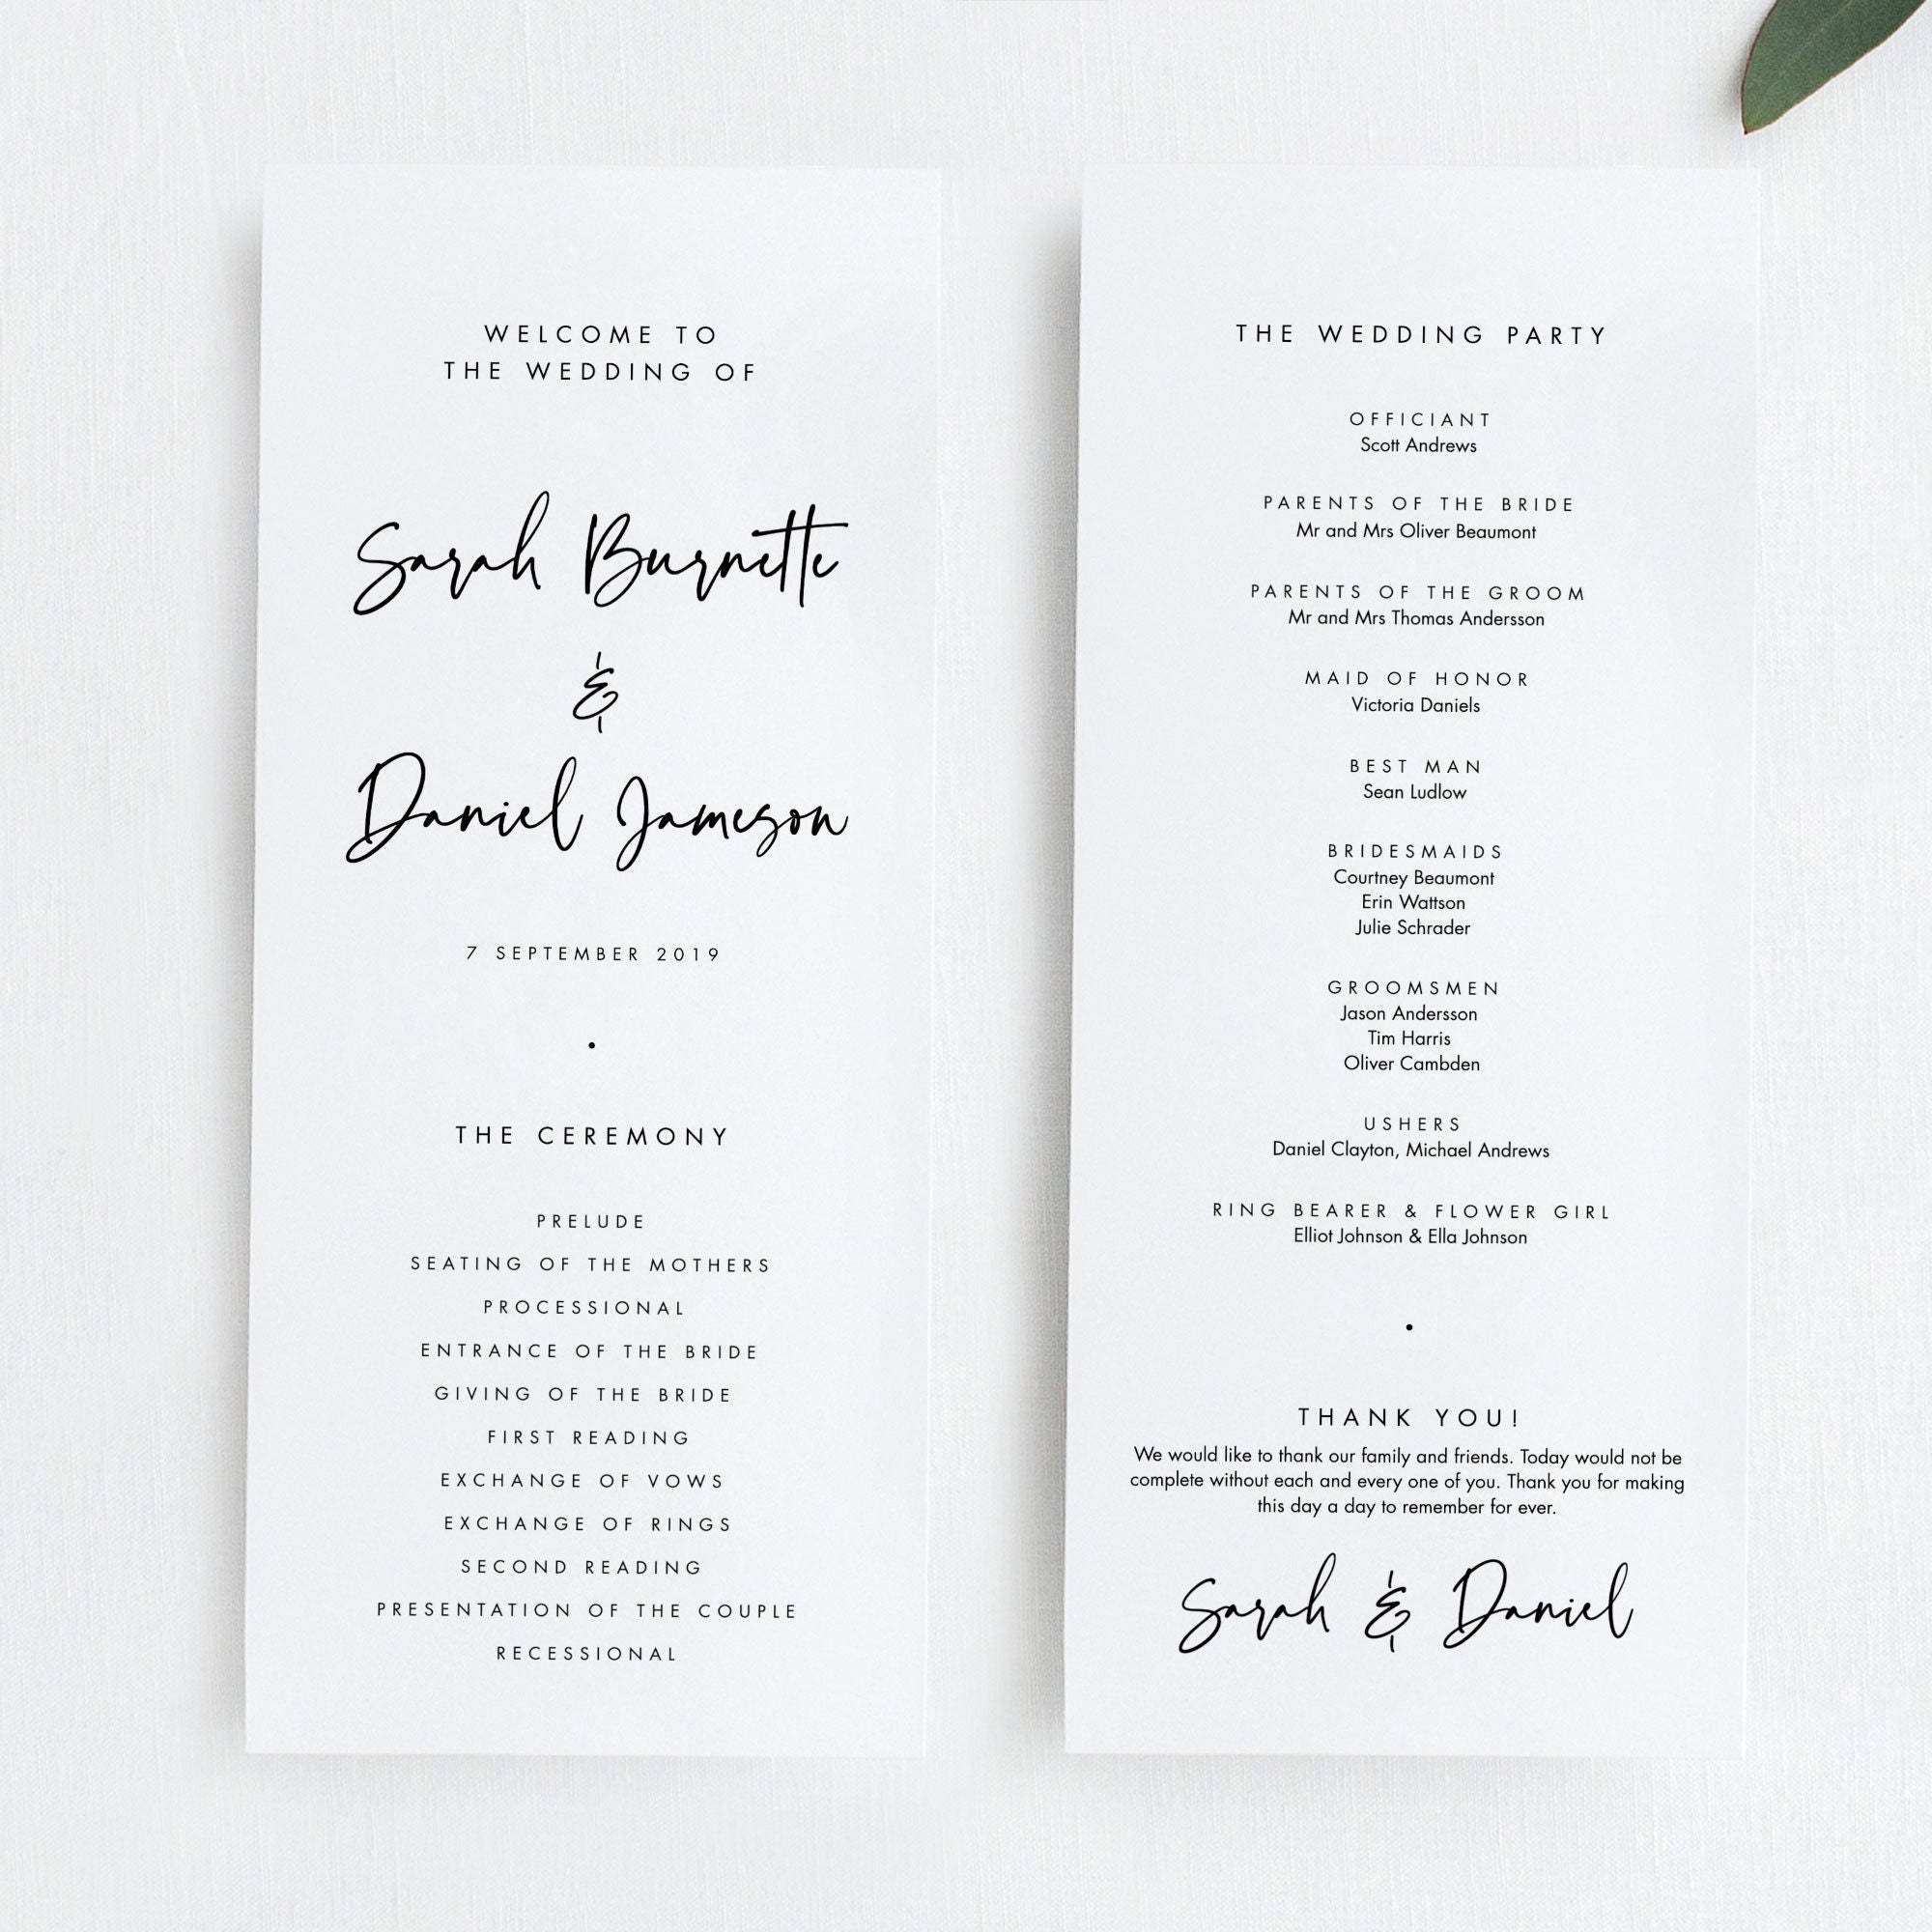 WELCOME TO
THE WEDDING OF
Sarah Burnette
&
Daniel Jameson
7 SEPTEMBER 2019
•
THE CEREMONY
PRELUDE
SEATING OF THE MOTHERS
PROCESSIONAL
ENTRANCE OF THE BRIDE
GIVING OF THE BRIDE
FIRST READING
EXCHANGE OF VOWS
EXCHANGE OF RINGS
SECOND READING
PRESENTATION OF THE COUPLE
RECESSIONAL
THE WEDDING PARTY
OFFICIANT
Scott Andrews
PARENTS OF THE BRIDE
Mr and Mrs Oliver Beaumont
PARENTS OF THE GROOM
Mr and Mrs Thomas Andersson
MAID OF HONOR
Victoria Daniels
BEST MAN
Sean Ludlow
BRIDESMAIDS
Courtney Beaumont
Erin Wattson
Julie Schrader
GROOMSMEN
Jason Andersson
Tim Harris
Oliver Cambden
USHERS
Daniel Clayton, Michael Andrews
RING BEARER & FLOWER GIRL
Elliot Johnson & Ella Johnson
•
THANK YOU!
We would like to thank our family and friends. Today would not be
complete without each and every one of you. Thank you for making
this day a day to remember for ever.
Sarah & Daniel